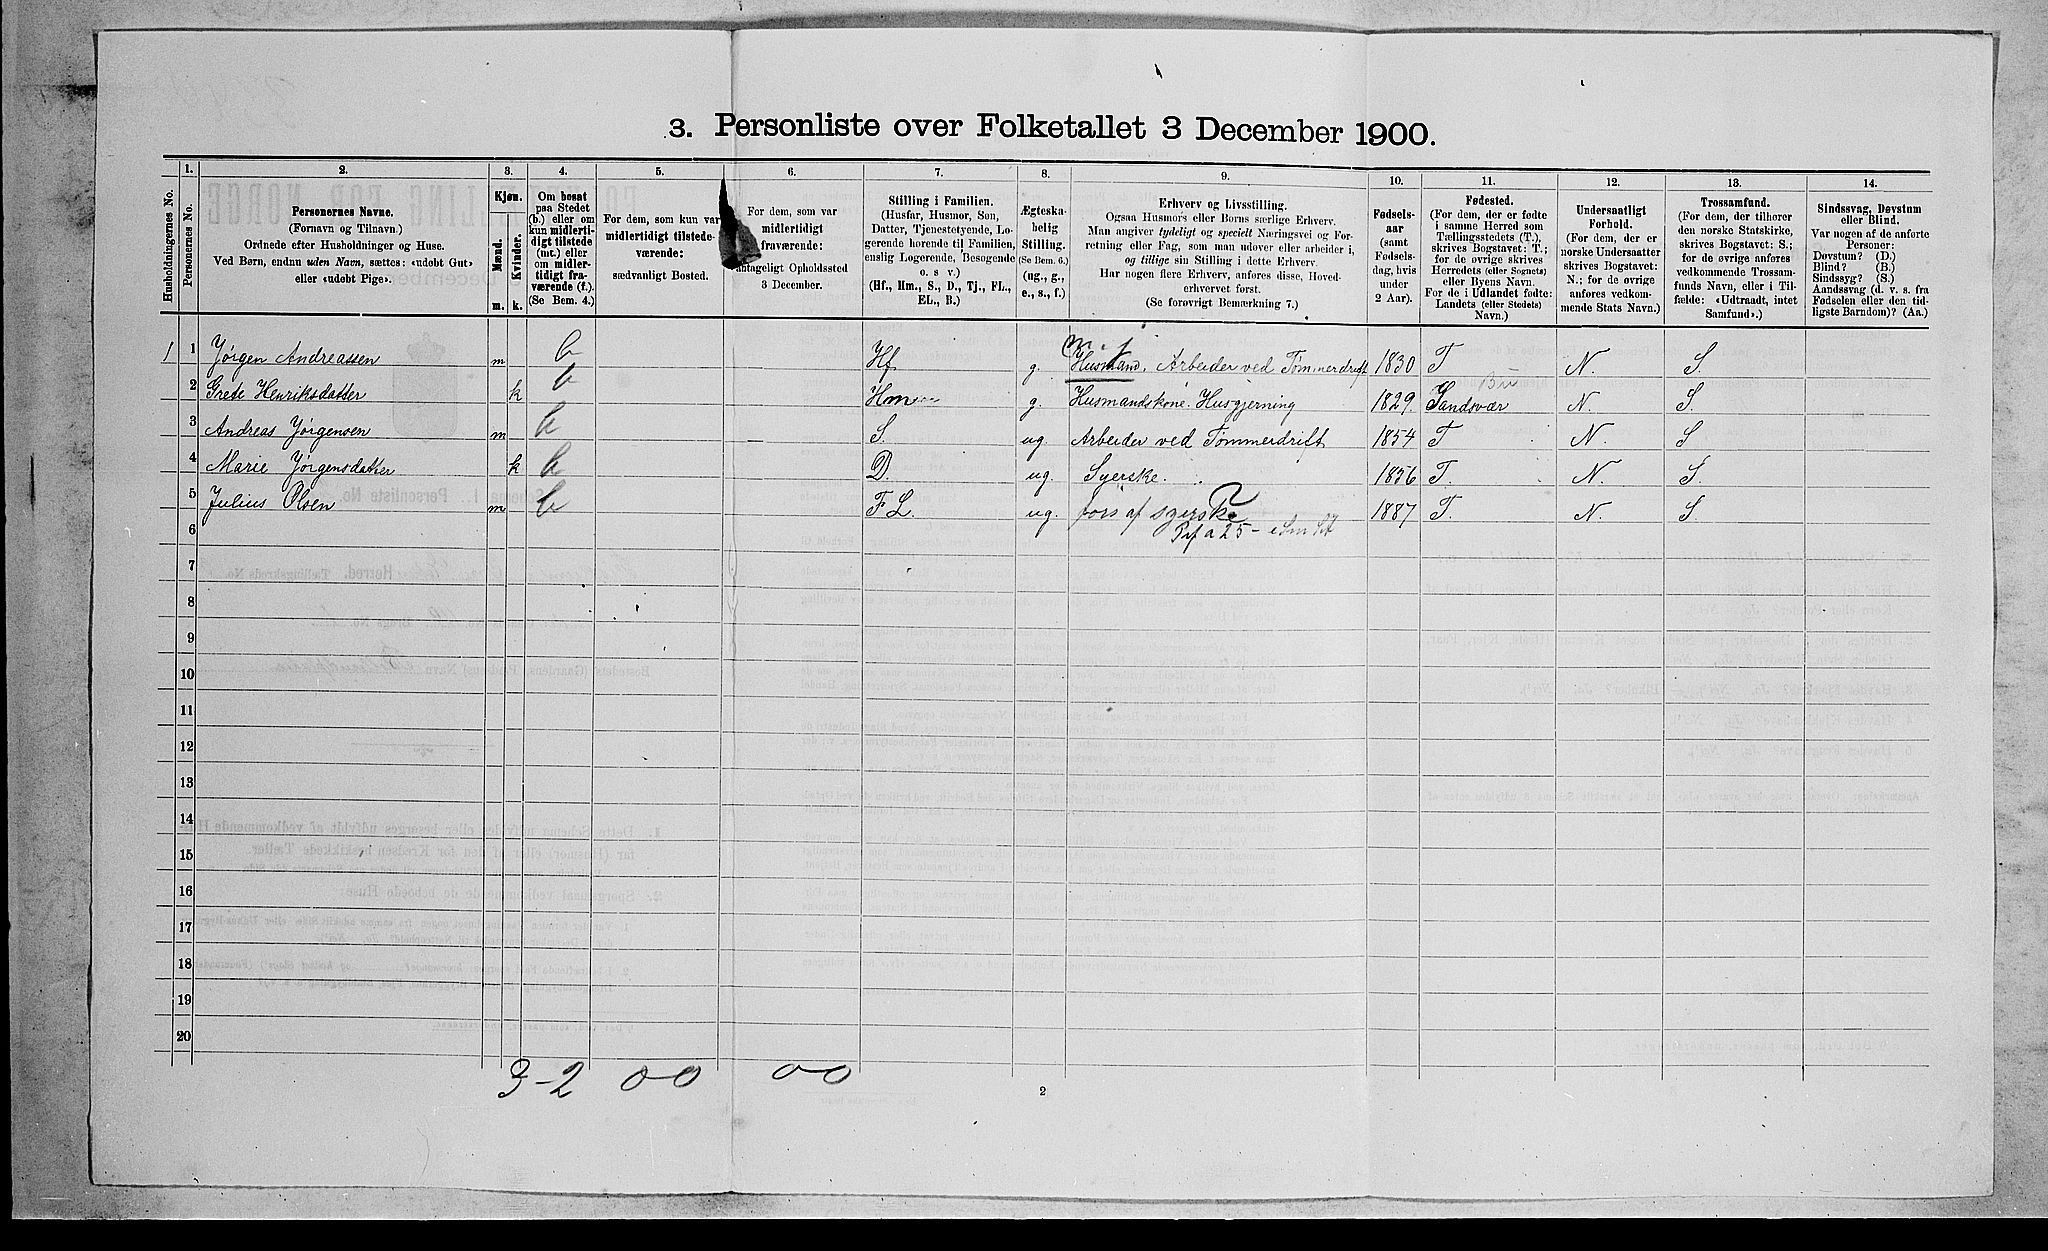 3. Personliste over Folketallet 3 December 1900.
Husholdningernes No.
1.
Personernes No.
2.
Personernes Navne.
(Fornavn og Tilnavn.)
Ordnede efter Husholdninger og Huse.
Ved Børn, endnu uden Navn, sættes: «udøbt Gut»
eller «udøbt Pige».
3.
Kjøn.
Mænd.
Kvinder.
m.
k.
4.
Om bosat
paa Stedet
(b.) eller om
kun midlerti-
digt tilstede
(mt.) eller
om midler-
tidigt fra-
værende (f.).
(Se Bem. 4.)
5.
For dem, som kun var
midlertidigt tilstede-
værende:
sædvanligt Bosted.
6.
For dem, som var
midlertidigt
fraværende:
antageligt Opholdssted
3 December.
7.
Stilling i Familien.
(Husfar, Husmor, Søn,
Datter, Tjenestetyende, Lo-
gerende hørende til Familien,
enslig Logerende, Besøgende
o. s. v.)
(Hf., Hm., S., D., Tj., FL.,
EL., B.)
8.
Ægteska-
belig
Stilling.
(Se Bem. 6.)
(ug., g.,
e., s., f.)
9.
Erhverv og Livsstilling.
Ogsaa Husmors eller Børns særlige Erhverv.
Man angiver tydeligt og specielt Næringsvei og For-
retning eller Fag, som man udover eller arbeider i,
og tillige sin Stilling i dette Erhverv.
Har nogen flere Erhverv, anføres disse, Hoved-
erhvervet først.
(Se forøvrigt Bemærkning 7.)
10.
Fødsels-
aar
(samt
Fødsels-
dag, hvis
under
2 Aar).
11.
Fødested.
(For dem, der er fødte
i samme Herred som
Tællingsstedets (T.),
skrives Bogstavet: T.;
for de øvrige skrives
Herredets (eller Sognets)
eller Byens Navn.
For de i Udlandet fødte:
Landets (eller Stedets)
Navn.)
12.
Undersaatligt
Forhold.
(For dem, der er
norske Undersaatter
skrives Bogstavet:
N.; for de øvrige
anføres vedkom-
mende Stats Navn.)
13.
Trossamfund.
(For dem, der tilhører
den norske Statskirke,
skrives Bogstavet: S.;
for de øvrige anføres
vedkommende Trossam-
funds Navn, eller i Til-
fælde: «Udtraadt, intet
Samfund».)
14.
Sindssvag, Døvstum
eller Blind.
Var nogen af de anførte
Personer:
Døvstum? (D.)
Blind? (B.)
Sindssyg? (S.)
Aandssvag (d. v. s. fra
Fødselen eller den tid-
ligste Barndom)? (Aa.)
1 1 Jørgen Andreassen m b Hf g. Husmand. Arbeider ved Tømmerdrift 1830 T N. S.
2 Grete Henriksdatter k b Hm g. Husmandskone. Husgjerning 1829. Sandsvær N. S.
3 Andreas Jørgensen m b S. ug. Arbeider ved Tømmerdrift 1854 T N. S
4 Marie Jørgensdatter k b D. ug. Syerske. 1856 T. N. S.
5 Julius Olsen m b F L. ug. fors af syerske 1887 T. N. S.
6
7
8
9
10
11
12
13
14
15
16
17
18
19
20
3-2 00 00
2